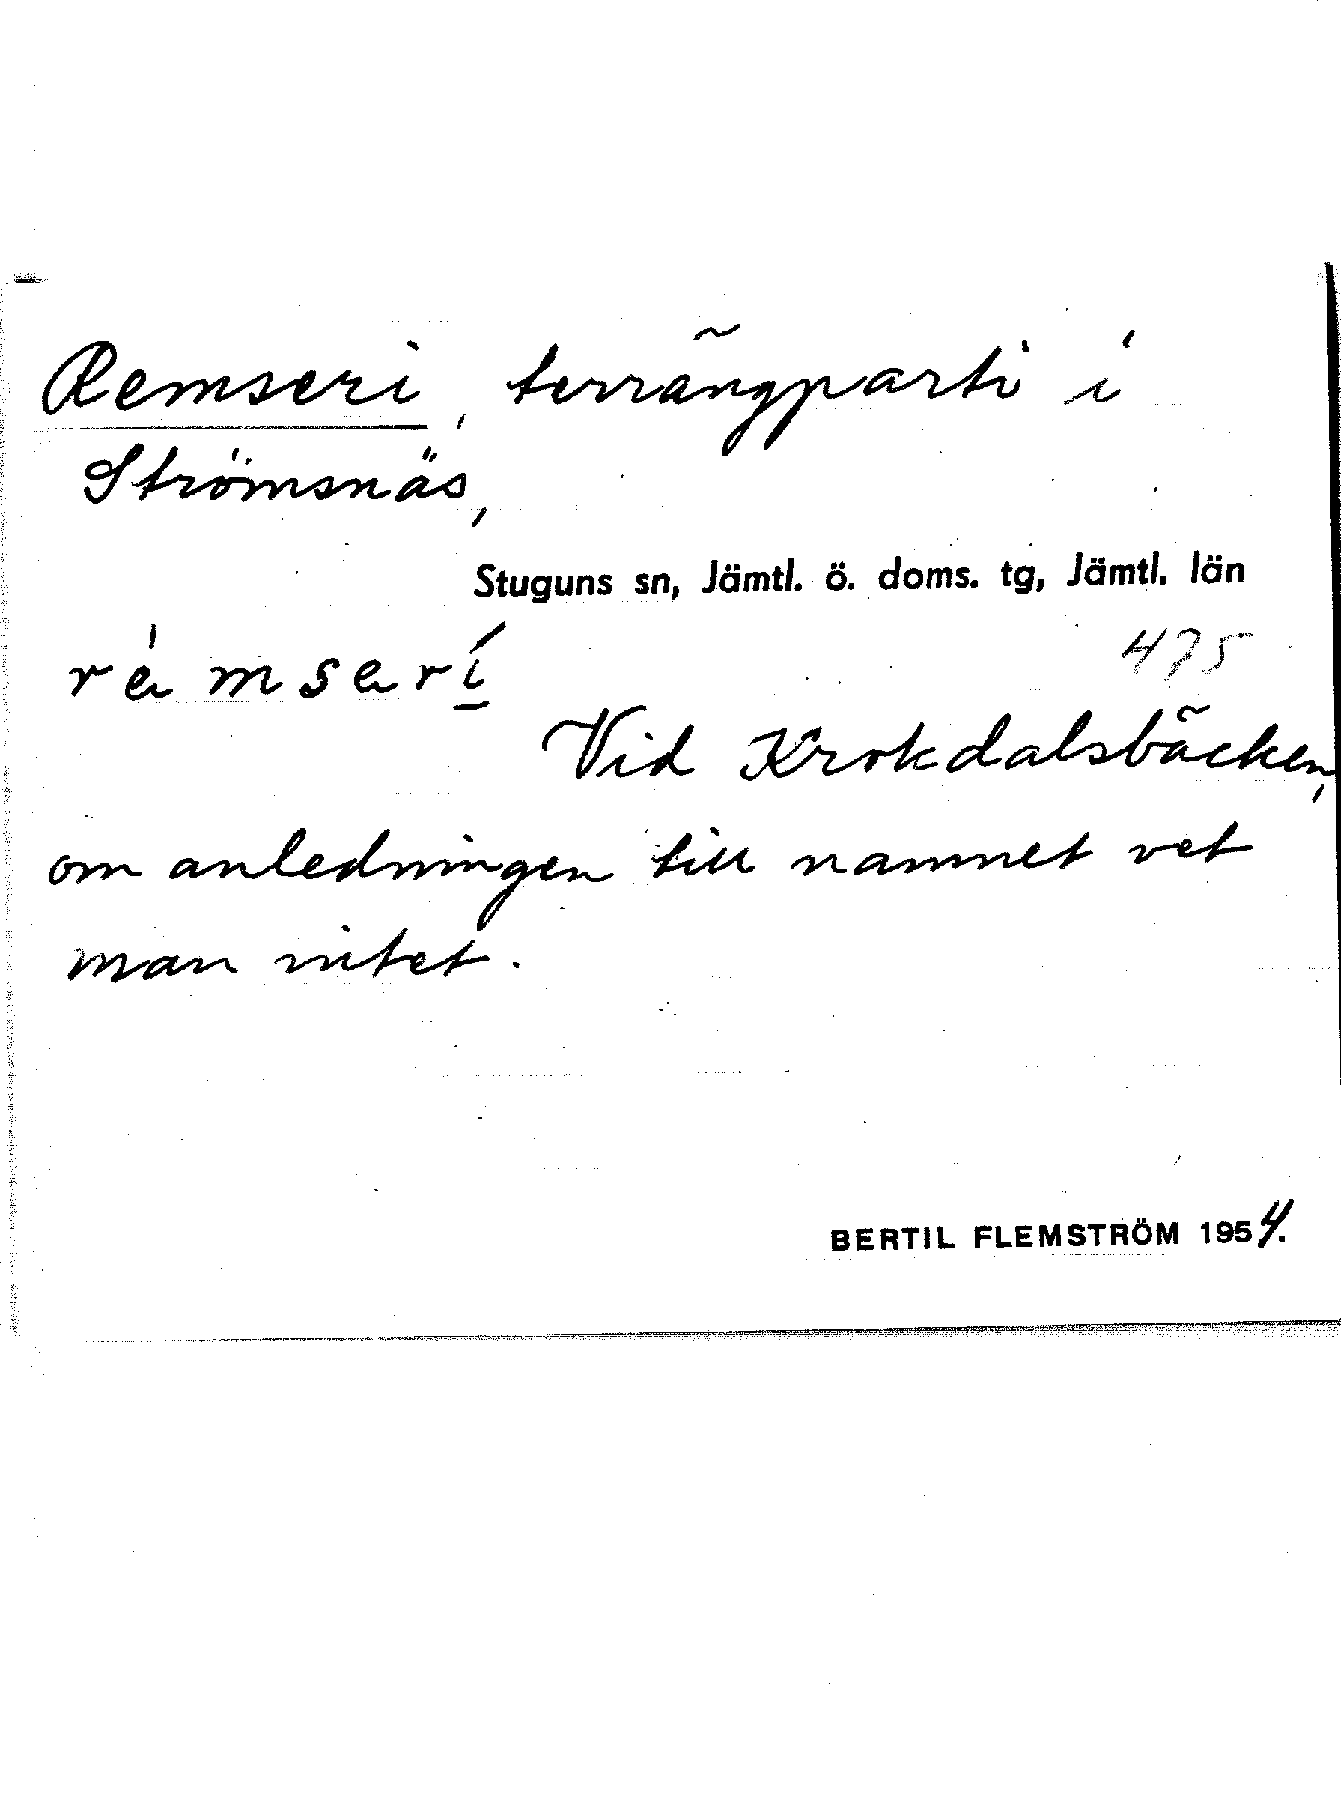 Remseri, terrängparti i
Strömsnäs,
Stuguns sn, Jämtl. ö. doms. tg, Jämtl. län
475
rémserí
Vid Krokdalsbäcken,
om anledningen till namnet vet
man intet.
BERTIL FLEMSTRÖM 1954.